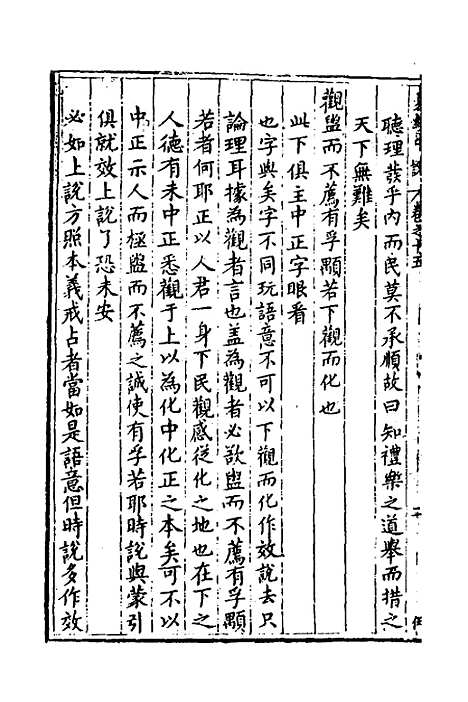 聽理發乎內而民莫不承順故曰知禮樂之道舉而措之
天下無難矣
觀盥而不薦有孚顒若下觀而化也
此下俱主中正字眼看
也字與矣字不同玩語意不可以下觀而化作效說去只
論理耳據為觀者言也盖為觀者必欲盥而不薦有孚顒
若者何耶正以人君一身下民觀感從化之地也在下之
人德有未中正悉觀于上以為化中化正之本矣可不以
中正示人而極盥而不薦之誠使有孚若耶時說與蒙引
俱就效上說了恐未安
必如上說方照本義戒占者當如是語意但時說多作效